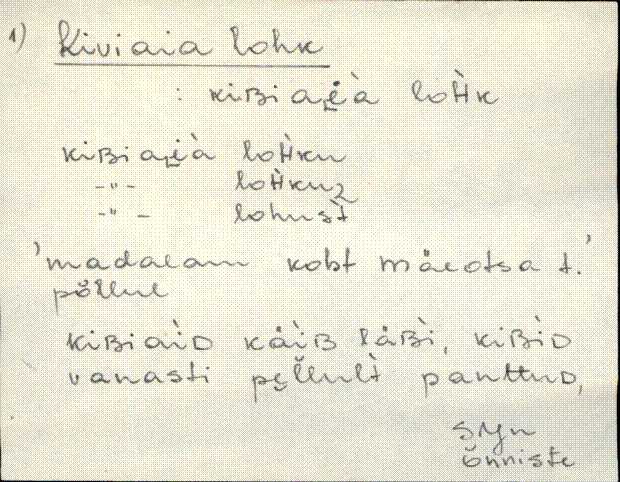 1) Kiviaia lohk
: kiʙiai̯è̀a loH̀k
kiʙiai̯è̀a loH̀ku
-"- loH̀kuz
-"- lohust̀
'madalam koht mäeotsa t.'
põllul
kiʙiaìᴅ käìʙ läʙì, kiʙìᴅ
vanasti pe̮llult̀ panttuᴅ,
Õnniste